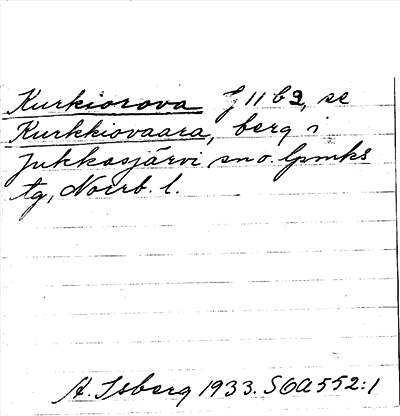 Kurkiorova J 11 b2, se
Kurkkiovaara, berg i
Jukkasjärvi sn o. lpmks
tg, Norrb. l.
A. Isberg 1933. SOA 552:1